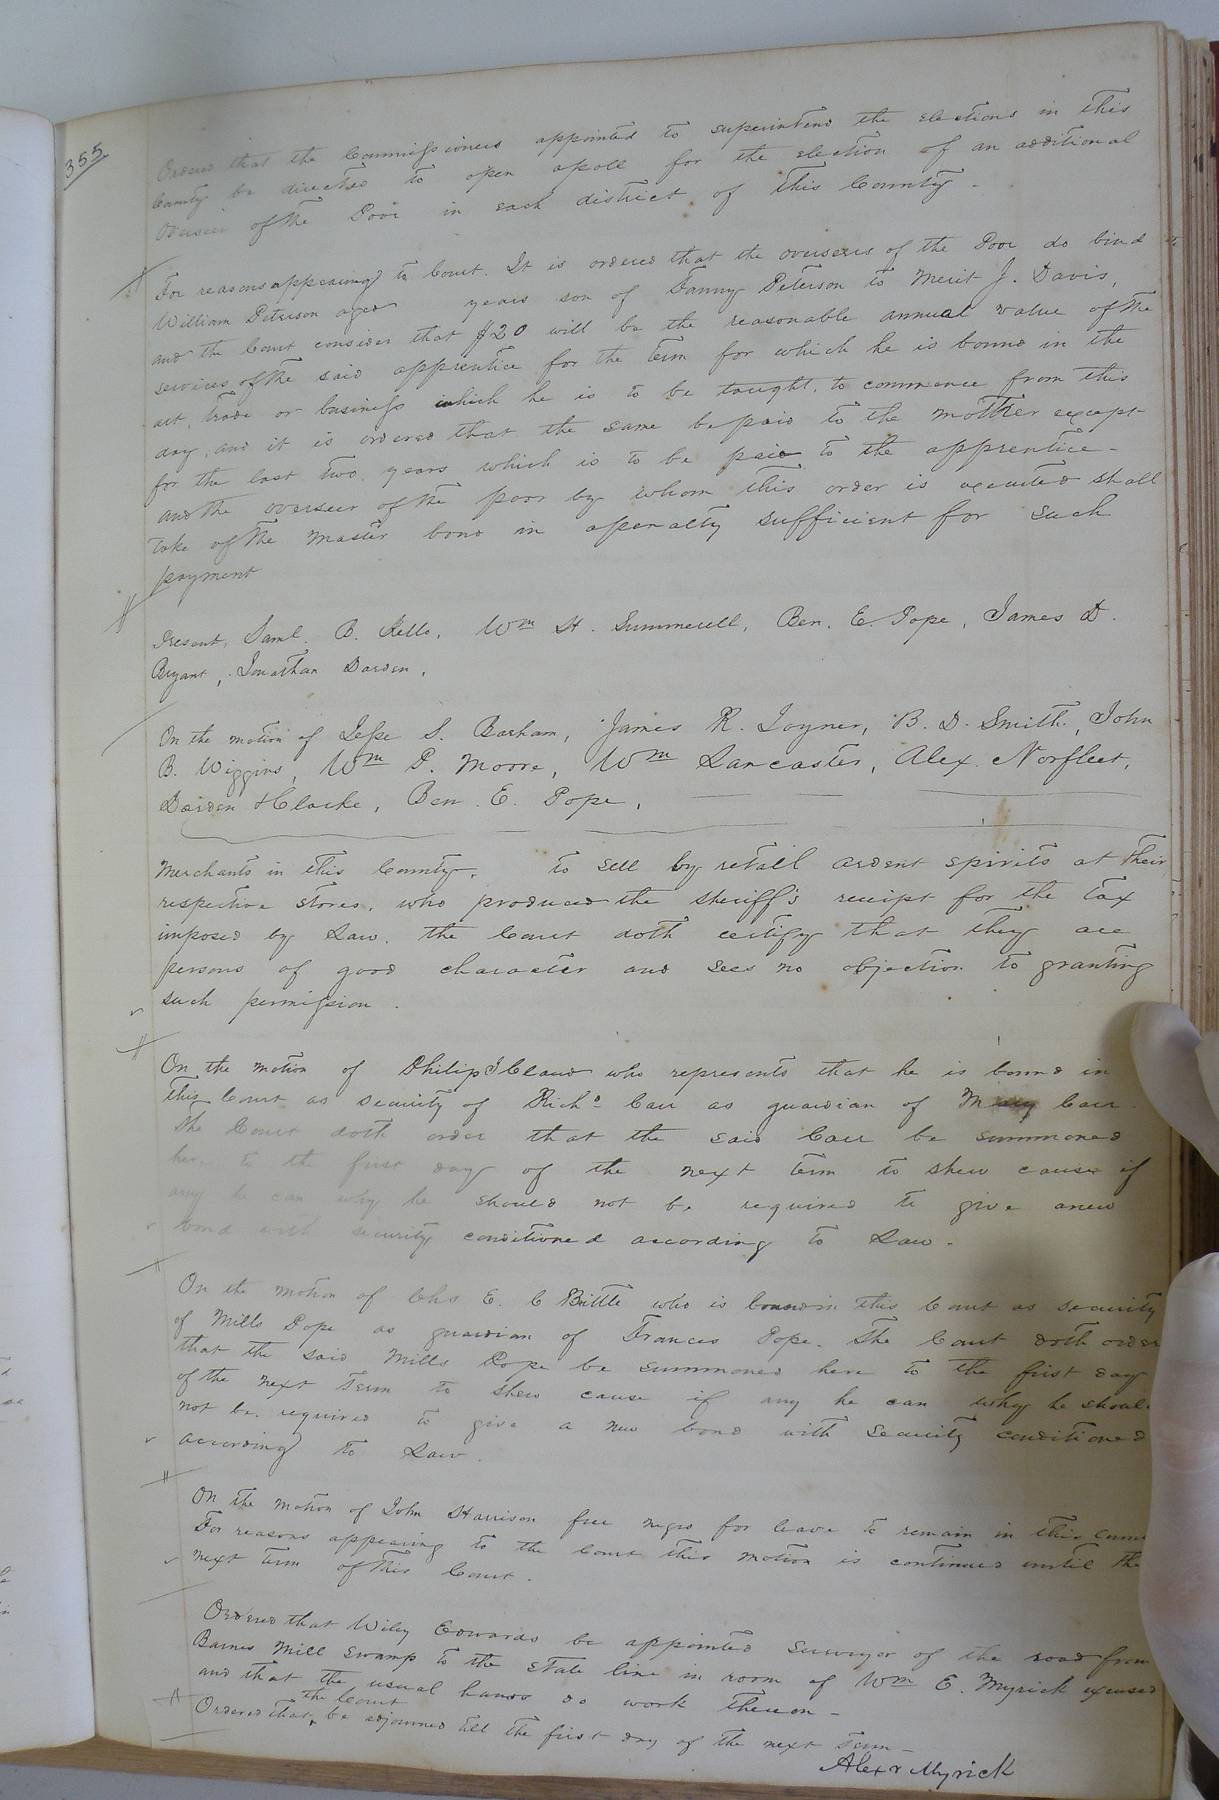 355
Ordered that the Commissioners appointed to superintend the elections in this
County be directed to open apoll for the election of an additional
Overseer of the Poor in each district of this County.
For reasons appearing to Court. It is ordered that the overseers of the Poor do bind
William Peterson aged years son of Fanny Peterson to Merit J. Davis,
and the Court consider that $20 will be the reasonable annual value of the
services of the said apprentice for the term for which he is bound in the
art, trade or business which he is to be taught, to commence from this
day, and it is ordered that the same be paid to the mother except
for the last two years which is to be paid to the apprentice -
and the overseer of the poor by whom this order is executed shall
take of the master bond in apenalty sufficient for such
payment
Present, Saml. B. Kello, Wm H. Summerell, Ben. E. Pope, James D.
Bryant, Jonathan Darden,
On the motion of Jesse S. Barham, James R. Joyner, B. D. Smith, John
B. Wiggins, Wm P. Moore, Wm Lancaster, Alex. Norfleet,
Darden & Clarke, Ben. E. Pope,
Merchants in this County, to sell by retail ardent spirits at their
respective stores, who produced the sheriff's receipt for the tax
imposed by Law. the Court doth certify that they are
persons of good character and sees no objection to granting
such permission.
On the motion of Philip J Claud who represents that he is bound in
this Court as security of Richd Carr as guardian of Mary Carr.
The Court doth order that the said Carr be summoned
here to the first day of the next term to shew cause if
any he can why he should not be required to give anew
bond with security conditioned according to Law.
On the motion of Chs E. C Brittle who is bound in this Court as security
of Mills Pope as guardian of Frances Pope. The Court doth order
that the said Mills Pope be summoned here to the first day
of the next term to shew cause if any he can why he should
not be required to give a new bond with security conditioned
according to Law.
On the motion of John Harrison free negro for leave to remain in this
For reasons appearing to the Court this motion is continued until the
next term of this Court.
Ordered that Wiley Edwards be appointed surveyor of the road from
Barnes Mill swamp to the state line in room of Wm E. Myrick excused
and that the usual hands do work thereon -
Ordered that the Court be adjourned till the first day of the next term -
Alexr Myrick